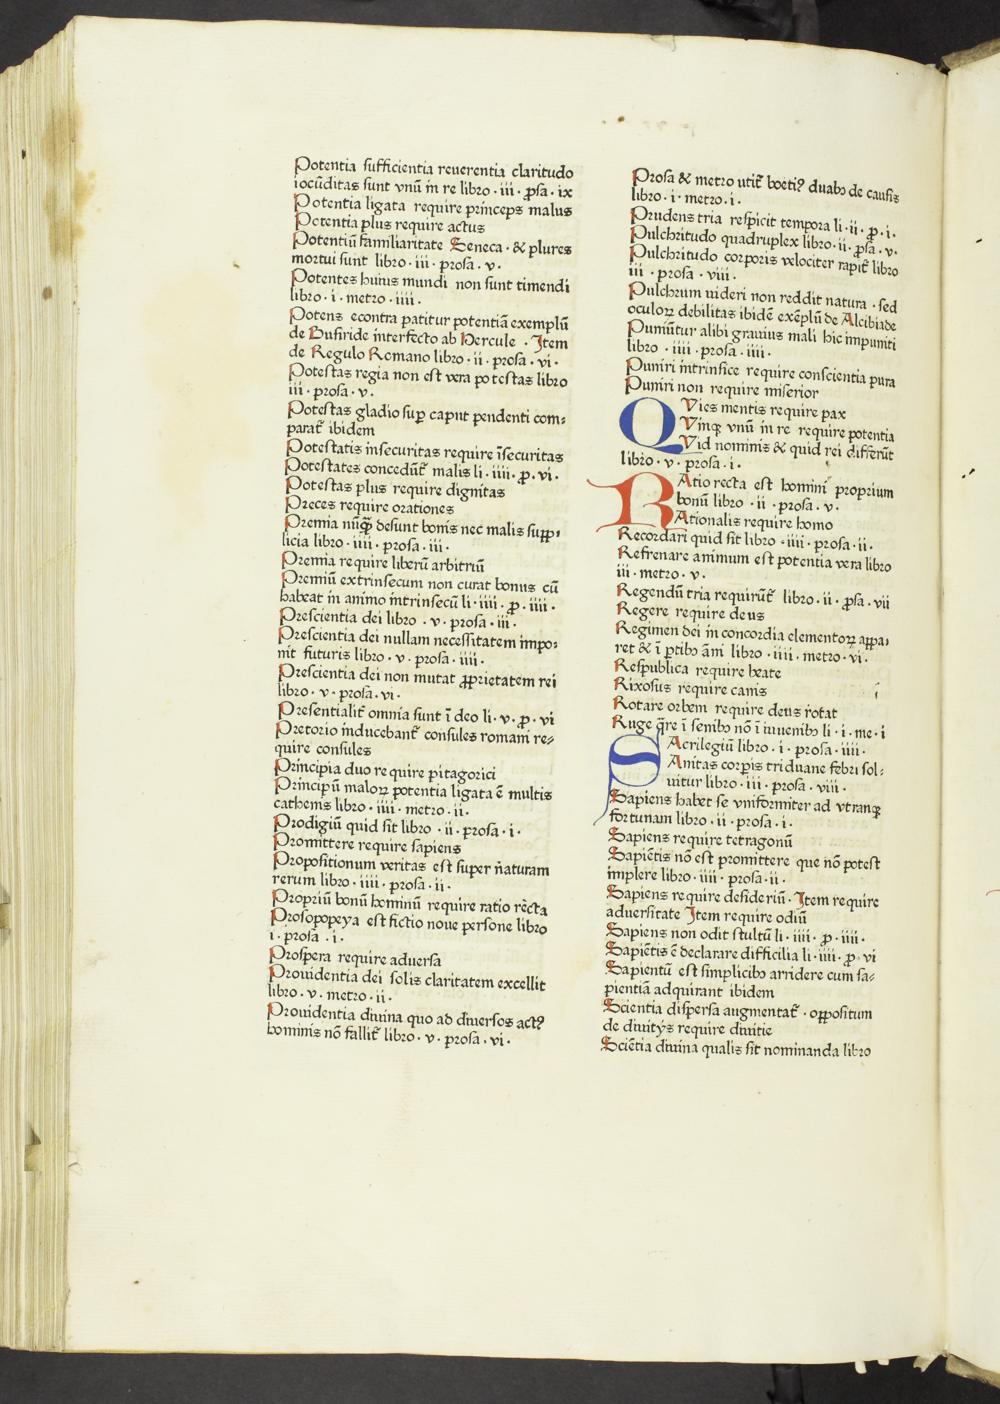 Potentia sufficientia reuerentia claritudo
iocūditas sunt vnū in re libro · iii · ꝓsa · ix
Potentia ligata require princeps malus
Potentia plus require actus
Potentiū familiaritate Seneca · & plures
mortui sunt libro · iii · prosa · v ·
Potentes huius mundi non sunt timendi
libro · i · metro · iiii ·
Potens econtra patitur potentiā exemplū
de Busiride interfecto ab Hercule · Item
de Regulo Romano libro · ii · prosa · vi ·
Potestas regia non est vera potestas libro
iii · prosa · v ·
Potestas gladio suꝑ caput pendenti com-
parat̃ ibidem
Potestatis insecuritas require īsecuritas
Potestates concedūt̃ malis li · iiii · ꝓ · vi ·
Potestas plus require dignitas
Preces require orationes
Premia nūꝗ̃ desunt bonis nec malis supp-
licia libro · iiii · prosa · iii ·
Premia require liberū arbitriū
Premiū extrinsecum non curat bonus cū
habeat in animo intrinsecū li · iiii · ꝓ · iiii ·
Prescientia dei libro · v · prosa · iii ·
Prescientia dei nullam necessitatem impo-
nit futuris libro · v · prosa · iiii ·
Prescientia dei non mutat ꝓprietatem rei
libro · v · prosa · vi ·
Presentialit̃ omnia sunt ī deo li · v · ꝓ · vi
Pretorio inducebant̃ consules romani re-
quire consules
Principia duo require pitagorici
Principū maloꝝ potentia ligata ē multis
cathenis libro · iiii · metro · ii ·
Prodigiū quid sit libro · ii · prosa · i ·
Promittere require sapiens
Propositionum veritas est super naturam
rerum libro · iiii · prosa · ii ·
Propriū bonū hominū require ratio recta
Prosopopeya est fictio noue persone libro
i · prosa · i ·
Prospera require aduersa
Prouidentia dei solis claritatem excellit
libro · v · metro · ii ·
Prouidentia diuina quo ad diuersos actꝰ
hominis nō fallit̃ libro · v · prosa · vi ·
Prosa & metro utit̃ boetiꝰ duabꝫ de causis
libro · i · metro · i ·
Prudens tria respicit tempora li · ii · ꝓ · i ·
Pulchritudo quadruplex libro · ii · ꝓsa · v ·
Pulchritudo corporis velociter rapit̃ libro
iii · prosa · viii ·
Pulchrum uideri non reddit natura · sed
oculoꝝ debilitas ibidē exēplū de Alcibiade
Puniūtur alibi grauius mali hic impuniti
libro · iiii · prosa · iiii ·
Puniri intrinsice require conscientia pura
Puniri non require miserior
QVies mentis require pax
Vinqꝫ vnū in re require potentia
Vid nominis & quid rei differūt
libro · v · prosa · i ·
RAtio recta est homini proprium
bonū libro · ii · prosa · v ·
Ationalis require homo
Recordari quid sit libro · iiii · prosa · ii ·
Refrenare animum est potentia vera libro
iii · metro · v ·
Regendū tria requirūt̃ libro · ii · ꝓsa · vii
Regere require deus
Regimen dei in concordia elementoꝝ appa-
ret & ī ꝑtibꝫ āni libro · iiii · metro · vi ·
Respublica require beate
Rixosus require canis
Rotare orbem require deus rotat
Ruge q̄re ī senibꝫ nō ī iuuenibꝫ li · i · me · i
SAcrilegiū libro · i · prosa · iiii ·
Anitas corꝑis triduane febri sol-
uitur libro · iii · prosa · viii ·
Sapiens habet se vniformiter ad vtranqꝫ
fortunam libro · ii · prosa · i ·
Sapiens require tetragonū
Sapiētis nō est promittere que nō potest
implere libro · iiii · prosa · ii ·
Sapiens require desideriū · Item require
aduersitate Item require odiū
Sapiens non odit stultū li · iiii · ꝓ · iiii ·
Sapiētis ē declarare difficilia li · iiii · ꝓ · vi
Sapientū est simplicibꝫ arridere cum sa-
pientiā adquirant ibidem
Scientia dispersa augmentat̃ · oppositum
de diuitÿs require diuitie
Sciētia diuina qualis sit nominanda libro